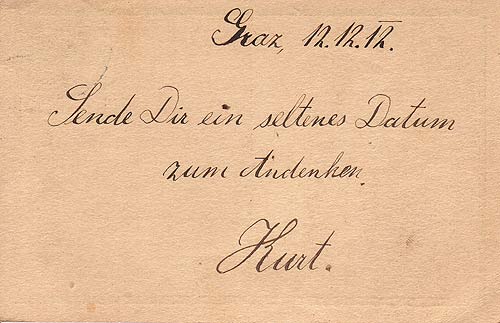 Graz, 12.12.12.
Sende Dir ein seltenes Datum
zum Andenken.
Kurt.